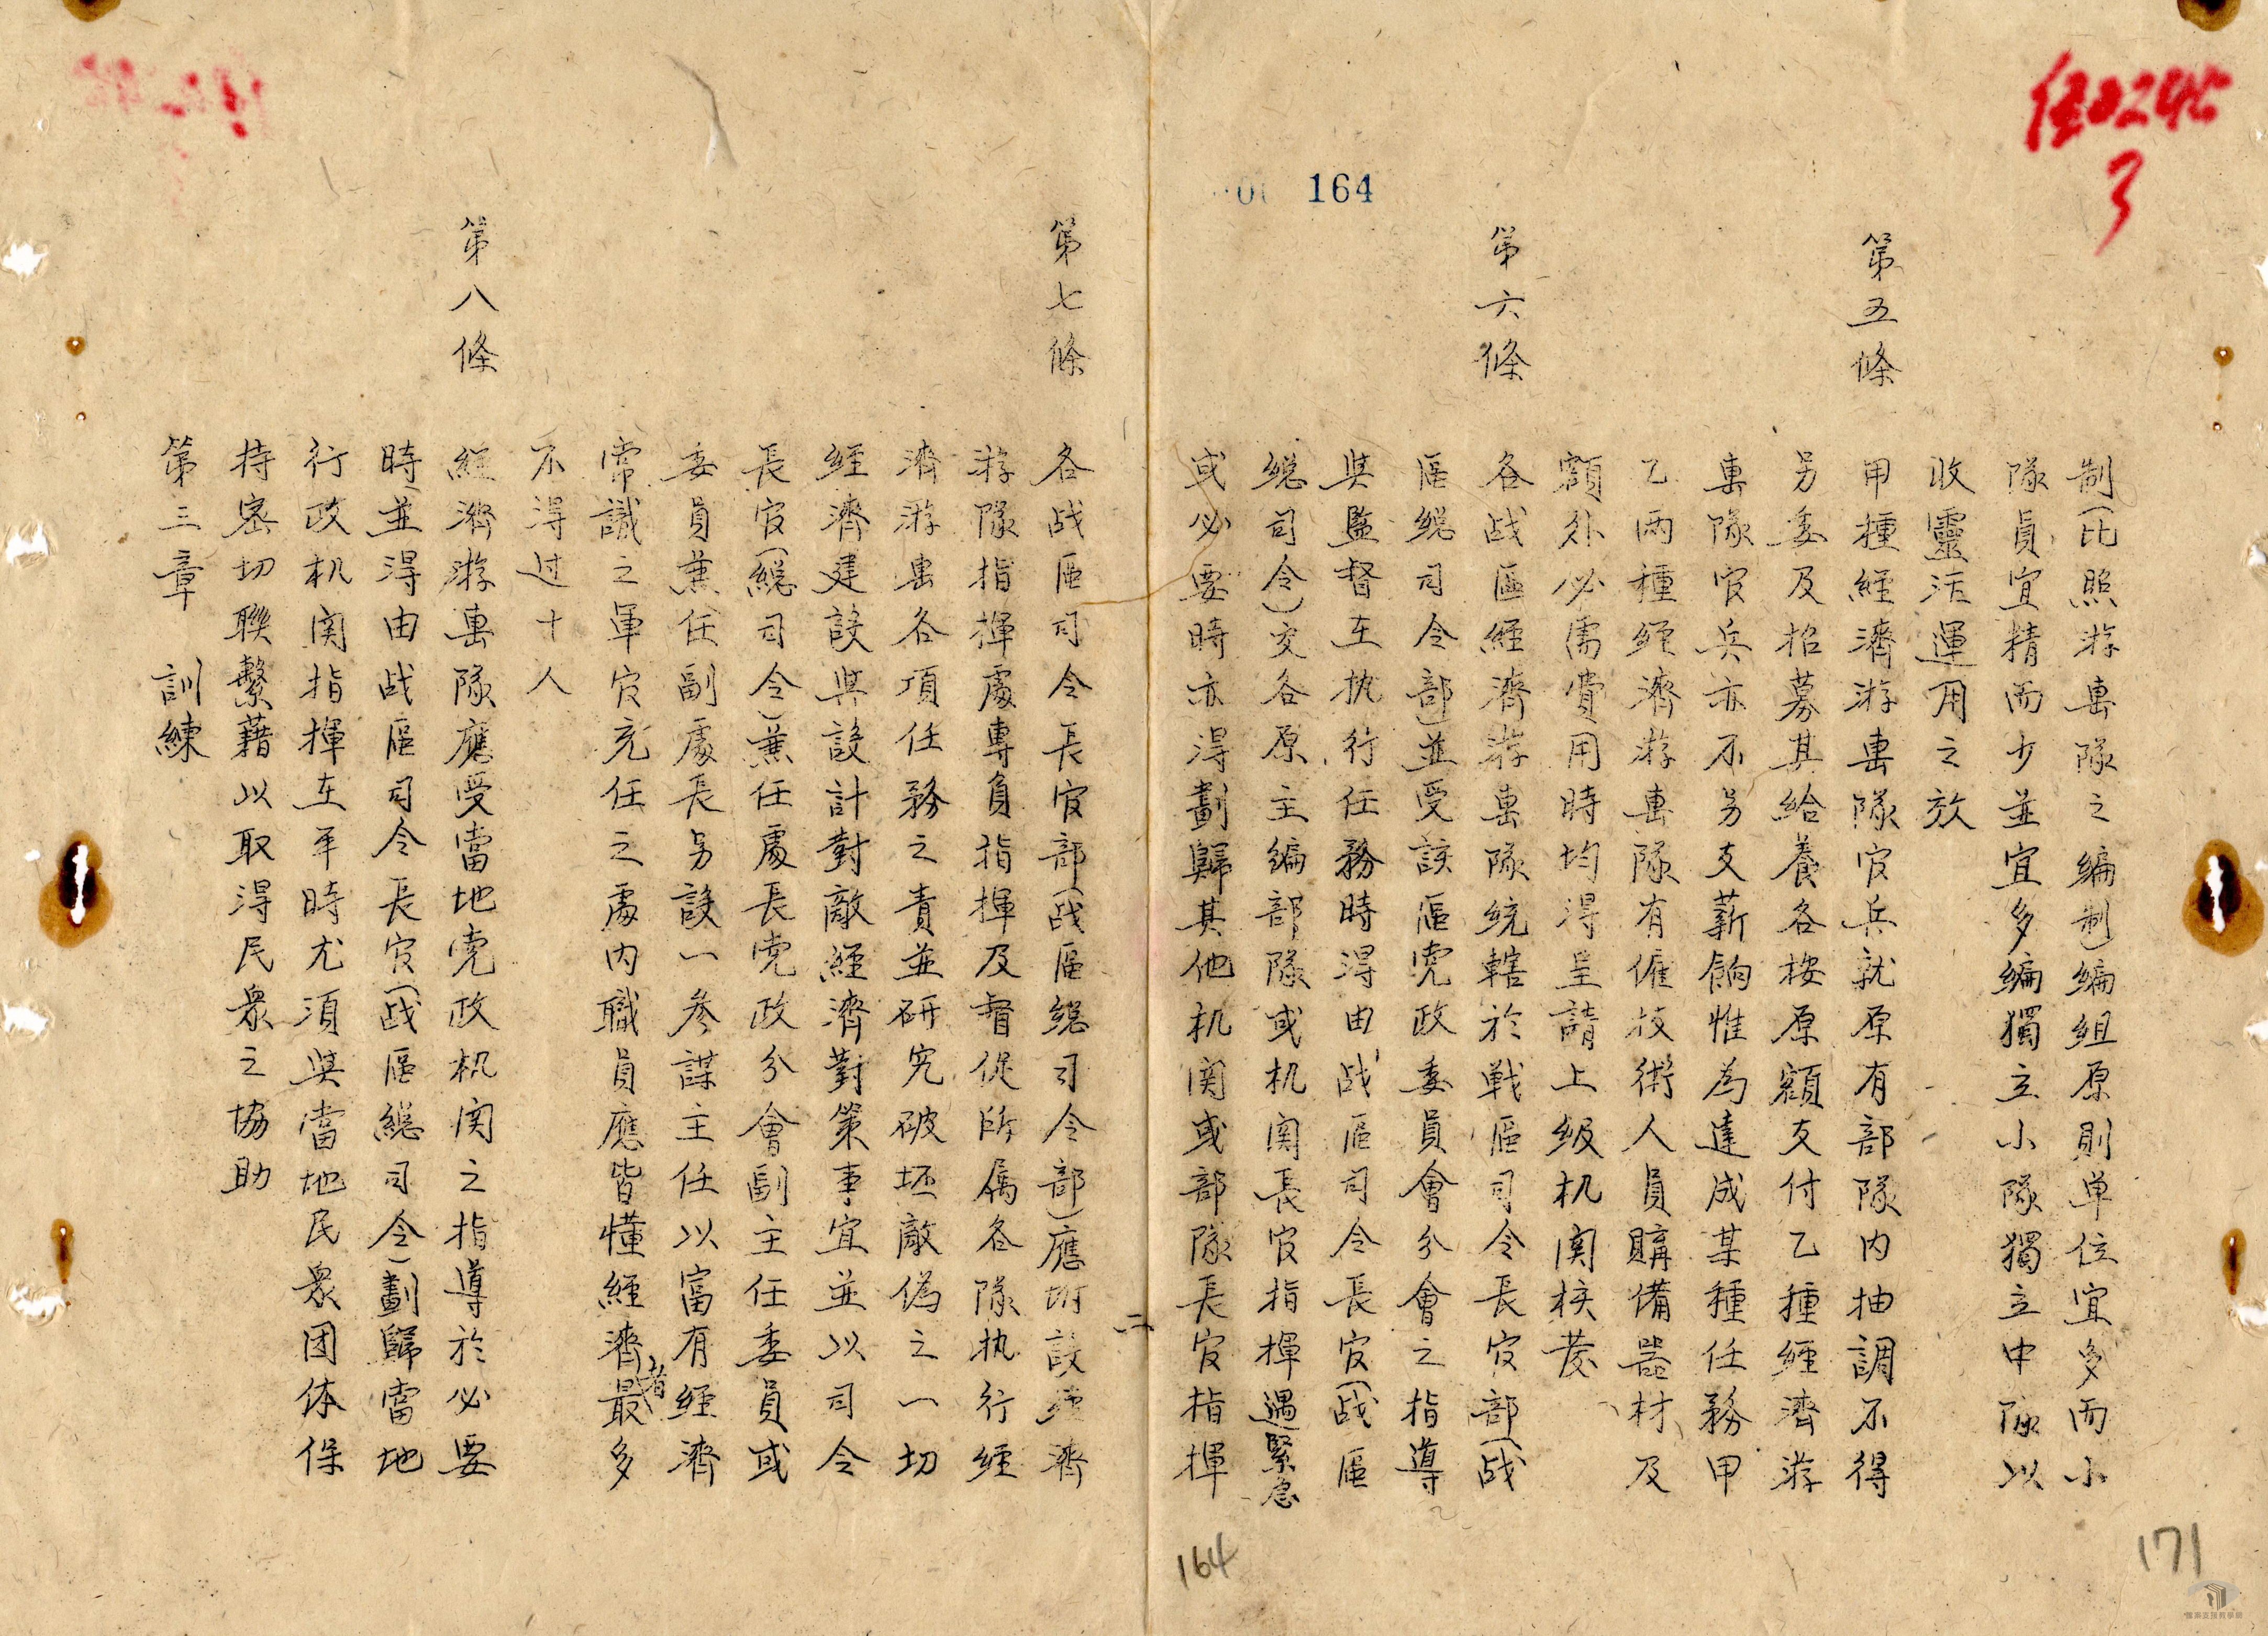 制(比照游击隊之編制)編組原則单位宜多而小
隊員宜精而少並宜多編獨立小隊獨立中隊以
收靈活運用之效
第五條
甲種經濟游击隊官兵就原有部隊内抽調不得
另委及招募其給養各按原額支付乙種經濟游
击隊官兵亦不另支薪餉惟為達成某種任務甲
乙兩種經濟游击隊有僱技術人員購備器材及
額外必需費用時均得呈請上級机関核發
第六條
各战區經濟游击隊統轄於戰區司令長官部(战
區總司令部)並受該區党政委員會分會之指導
與監督在执行任務時得由战區司令長官(战區
總司令)交各原主編部隊或机関長官指揮遇緊急
或必要時亦得劃歸其他机関或部隊長官指揮
二
第七條
各战區司令長官部(战區總司令部)應附設經濟
游隊指揮處專負指揮及督促所屬各隊执行經
濟游击各項任務之責並研究破坯敵偽之一切
經濟建設與設計對敵經濟對策事宜並以司令
長官(總司令)兼任處長党政分會副主任委員或
委員兼任副處長另設一參謀主任以富有經濟
常識之軍官充任之處内職員應皆懂經濟者最多
不得过十人
第八條
經濟游击隊應受當地党政机関之指導於必要
時並得由战區司令長官(战區總司令)劃歸當地
行政机関指揮在平時尤須與當地民眾团体保
持密切聯繫藉以取得民眾之協助
第三章 訓練
164
164
171
3